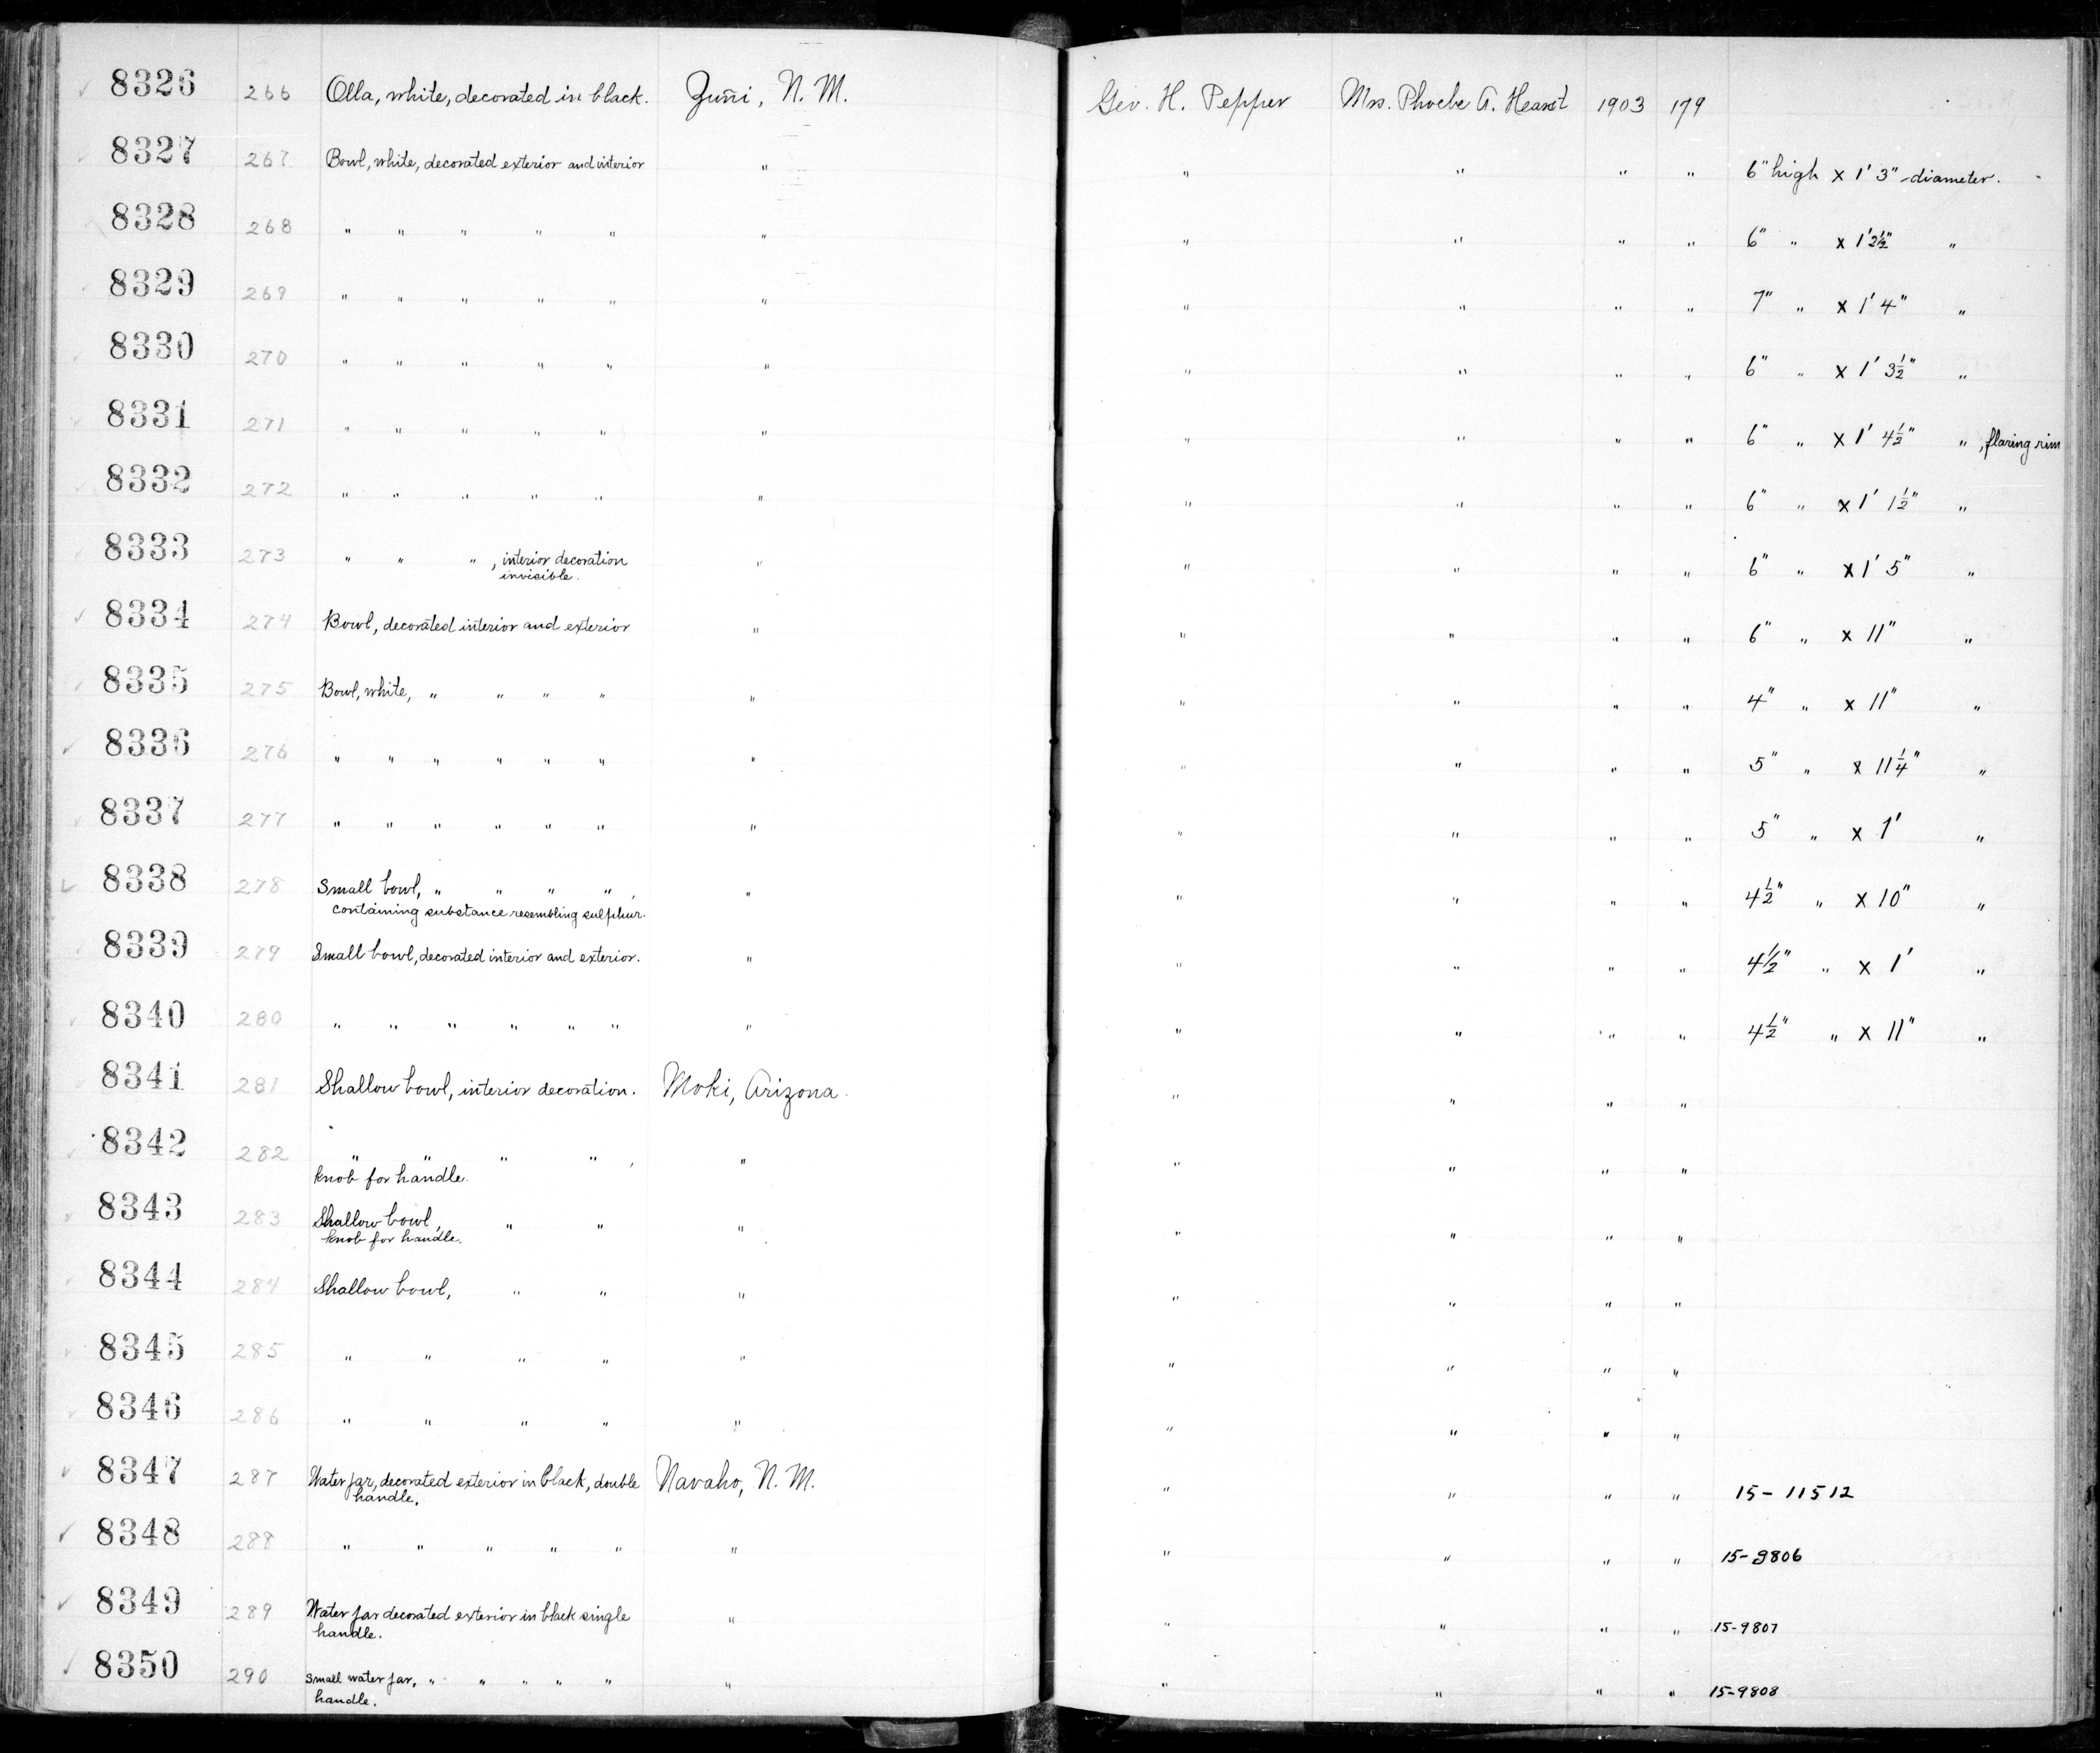 8326 266 Olla, white, decorated in black. Zuñi, N. M. Geo. H. Pepper Mrs. Phoebe A. Hearst 1903 179
8327 267 Bowl, white, decorated exterior and interior " " " " " 6" high x 1' 3" diameter.
8328 268 " " " " " " " " " " 6" " x 1' 2½" "
8329 269 " " " " " " " " " " 7" " x 1' 4" "
8330 270 " " " " " " " " " " 6" " x 1' 3½" "
8331 271 " " " " " " " " " " 6" " x 1' 4½" ", flaring rim
8332 272 " " " " " " " " " " 6" " x 1' 1½" "
8333 273 " " ", interior decoration " " " " " 6" " x 1' 5" "
invisible.
8334 274 Bowl, decorated interior and exterior " " " " " 6" " x 11" "
8335 275 Bowl, white, " " " " " " " " " 4" " x 11" "
8336 276 " " " " " " " " " " " 5" " x 11¼" "
8337 277 " " " " " " " " " " " 5" " x 1' "
8338 278 Small bowl, " " " ", " " " " " 4½" " x 10" "
containing substance resembling sulphur.
8339 279 Small bowl, decorated interior and exterior. " " " " " 4½" " x 1' "
8340 280 " " " " " " " " " " " 4½" " x 11" "
8341 281 Shallow bowl, interior decoration. Moki, Arizona. " " " "
8342 282 " " " ", " " " " "
knob for handle.
8343 283 Shallow bowl, " " " " " " "
knob for handle.
8344 284 Shallow bowl, " " " " " " "
8345 285 " " " " " " " " "
8346 286 " " " " " " " " "
8347 287 Water jar, decorated exterior in black, double Navaho, N. M. " " " " 15-11512
handle.
8348 288 " " " " " " " " " " 15-9806
8349 289 Water jar decorated exterior in black single " " " " " 15-9807
handle.
8350 290 Small water jar, " " " " " " " " " " 15-9808
handle.